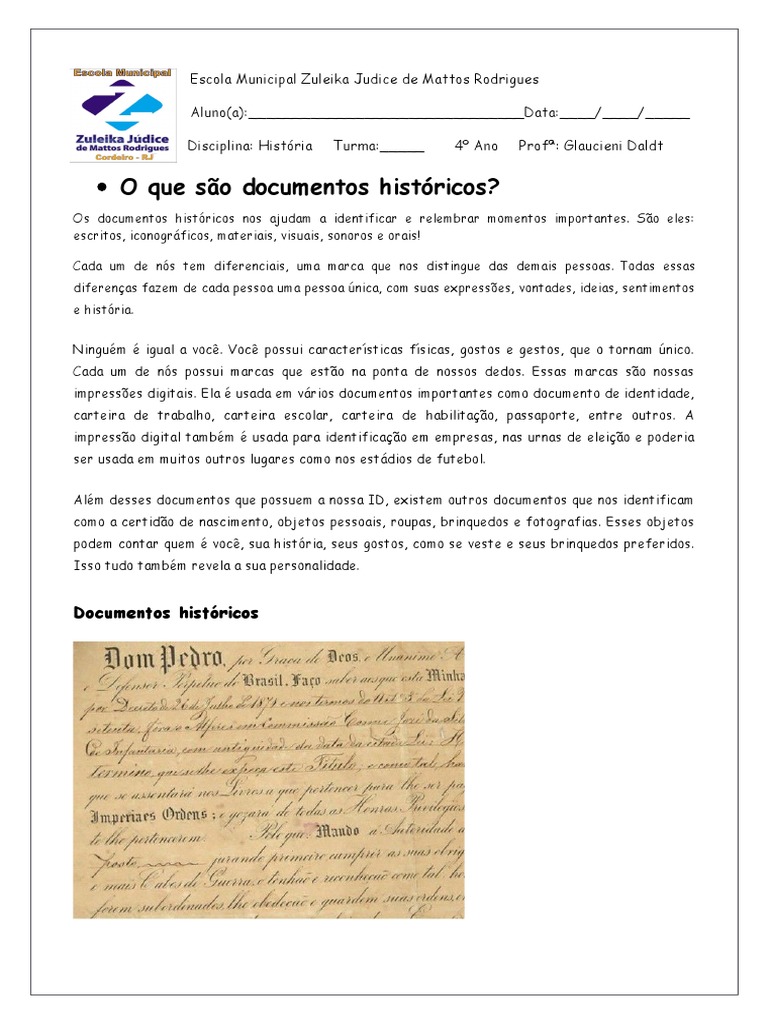 Escola Municipal
Zuleika Júdice
de Mattos Rodrigues
Cordeiro - RJ
Escola Municipal Zuleika Judice de Mattos Rodrigues
Aluno(a):_______________________________Data:____/____/_____
Disciplina: História Turma:_____ 4º Ano Profª: Glaucieni Daldt
• O que são documentos históricos?
Os documentos históricos nos ajudam a identificar e relembrar momentos importantes. São eles:
escritos, iconográficos, materiais, visuais, sonoros e orais!
Cada um de nós tem diferenciais, uma marca que nos distingue das demais pessoas. Todas essas
diferenças fazem de cada pessoa uma pessoa única, com suas expressões, vontades, ideias, sentimentos
e história.
Ninguém é igual a você. Você possui características físicas, gostos e gestos, que o tornam único.
Cada um de nós possui marcas que estão na ponta de nossos dedos. Essas marcas são nossas
impressões digitais. Ela é usada em vários documentos importantes como documento de identidade,
carteira de trabalho, carteira escolar, carteira de habilitação, passaporte, entre outros. A
impressão digital também é usada para identificação em empresas, nas urnas de eleição e poderia
ser usada em muitos outros lugares como nos estádios de futebol.
Além desses documentos que possuem a nossa ID, existem outros documentos que nos identificam
como a certidão de nascimento, objetos pessoais, roupas, brinquedos e fotografias. Esses objetos
podem contar quem é você, sua história, seus gostos, como se veste e seus brinquedos preferidos.
Isso tudo também revela a sua personalidade.
Documentos históricos
Dom Pedro, por Graca de Deos, e Unanime A
e Defensor Perpetuo do Brasil, Faço saber aos que esta Minha
por Decreto de 26 de Julho de 1871 e nos termos do Art. 3 da Lei
setenta, fira o Alferes em Commissão Cosme José da
de Infantaria, com antiguidade da data da citada Lei:
termino, que se lhe expeça este Titulo, e como tal
que se assentará nos Livros a que pertencer para lhe ser pa
Imperiaes Ordens; e gozará de todas as Honras, Privilegios
te lhe pertencerem. Pelo que Mando á Autoridade a
posto jurando primeiro cumprir as suas obrig
e mais Cabos de Guerra, o tenhão e reconheção como tal,
forem subordinados, lhe obedeção e guardem suas ordens, e